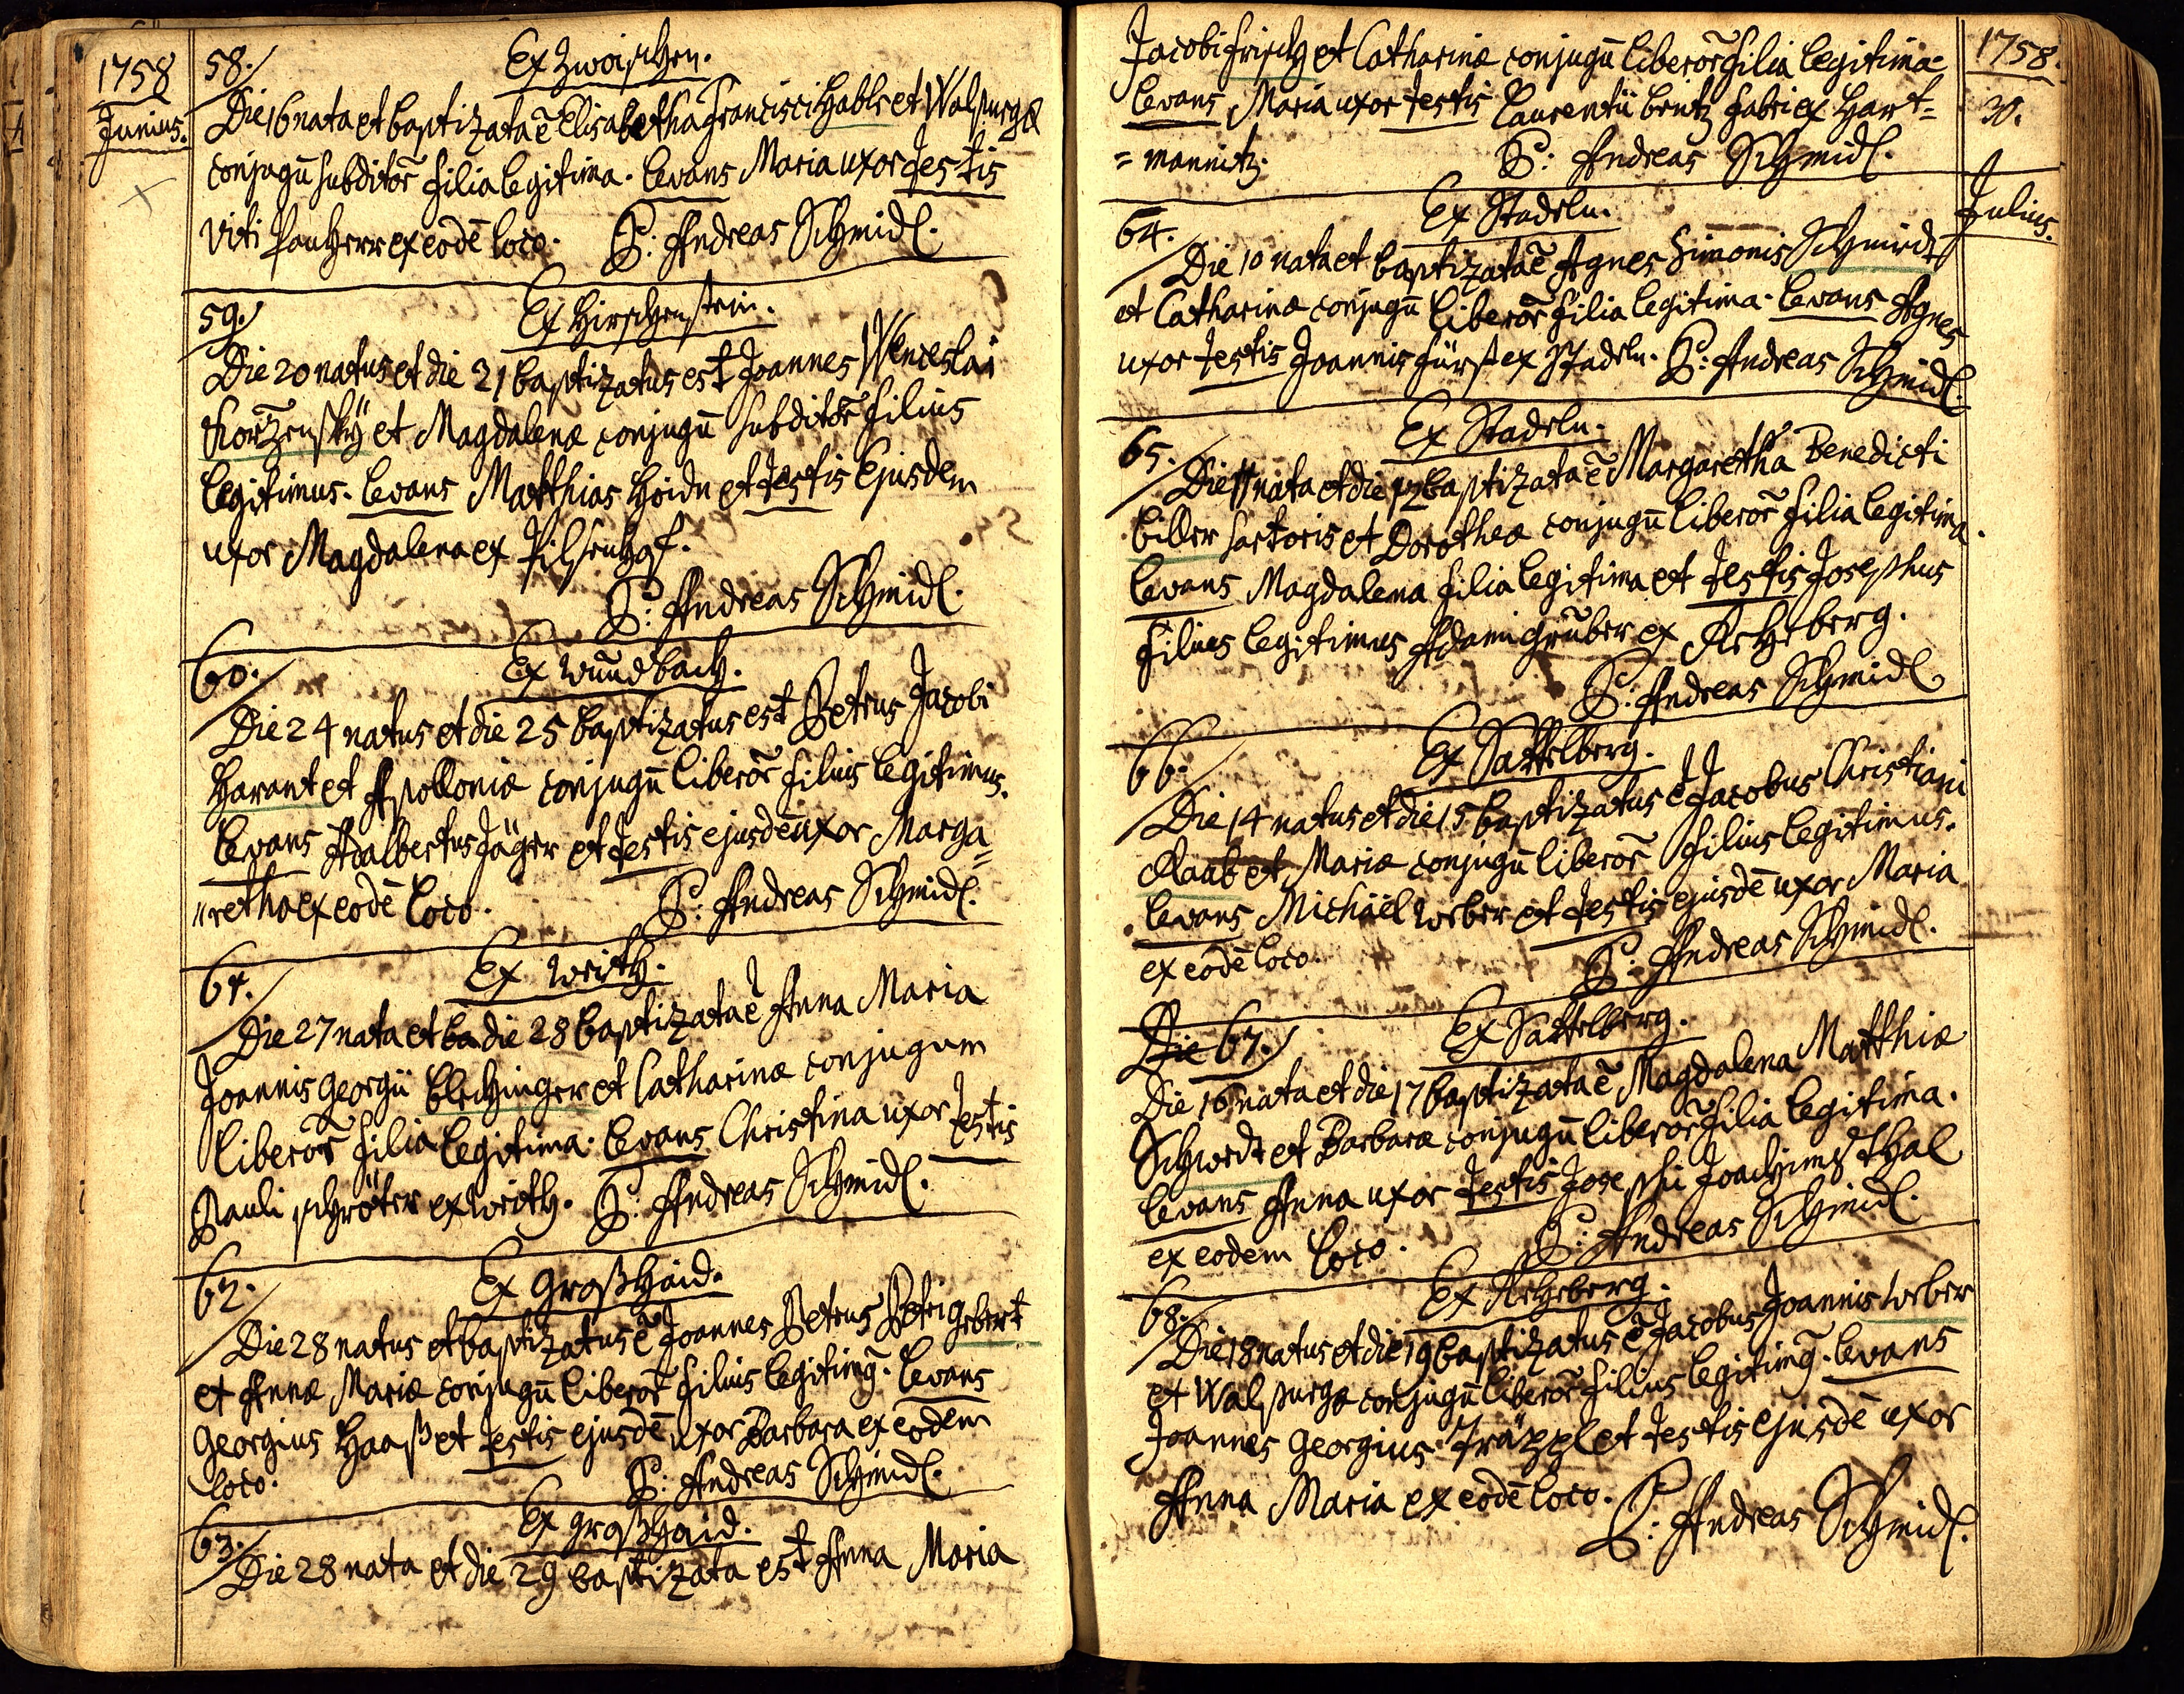 1758
Junius.
58. Ex Zwoischen.
Die 16 nata et baptizata ē Elisabetha Francisci Habls et Walpurgæ
conjugū subditor̃ filia legitima. Levans Maria uxor Testis
Viti Panherr ex eodē loco. P: Andreas Schmidl.
59. Ex Hirschenstein.
Die 20 natus et die 21 baptizatus est Joannes Wenceslai
Kor̃zensky et Magdalenæ conjugū subditor̃ filius
legitimus. Levans Matthias Hoidn et Testis ejusdem
uxor Magdalena ex Pilsenhof.
P: Andreas Schmidl.
60. Ex Wundbach.
Die 24 natus et die 25 baptizatus est Petrus Jacobi
Harant et Apolloniæ conjugū liberor̃ filius legitimus.
Levans Adalbertus Jäger et Testis ejusdē uxor Marga=
"retha ex eodē loco. P: Andreas Schmidl.
61. Ex Writh.
Die 27 nata et ba die 28 baptizata ē Anna Maria
Joannis Georgii Blechinger et Catharinæ conjugum
liberor̃ filia legitima. Levans Christina uxor Testis
Pauli schröter ex Writh. P: Andreas Schmidl.
62. Ex Großhaid.
Die 28 natus et baptizatus ē Joannes Petrus Petri gebert
et Annæ Mariæ conjugū liberor̃ filius legitimg̃. Levans
Georgius Haaß et Testis ejusdē uxor Barbara ex eodem
loco. P: Andreas Schmidl.
63. Ex großhaid.
Die 28 nata et die 29 baptizata est Anna Maria
1758.
Jacobi frisch et Catharinæ conjugū liberor̃ filia legitima.
Levans Maria uxor Testis Laurentii britz fabri ex Hart= 30.
=mannitz. P: Andreas Schmidl.
Julius.
64. Ex Stadeln.
Die 10 nata et baptizata ē Agnes Simonis Schmirdt
et Catharinæ conjugū liberor̃ filia legitima. Levans Agnes
uxor Testis Joannis fürst ex Stadeln. P: Andreas Schmidl.
65. Ex Stadeln.
Die 11 nata et die 12 baptizata ē Margaretha Benedicti
biller sartoris et Dorotheæ conjugū liberor̃ filia legitima.
Levans Magdalena filia legitima et Testis Josephus
filius legitimus Adami grũber ex Rehberg.
P: Andreas Schmidl.
66. Ex Sattelberg.
Die 14 natus et die 15 baptizatus ē Jacobus Christiani
Raab et Mariæ conjugū liberor̃ filius legitimus.
Levans Michäel weber et Testis ejusdē uxor Maria
ex eodē loco. P: Andreas Schmidl.
Die 67. Ex Sattelberg.
Die 16 nata et die 17 baptizata ē Magdalena Matthiæ
Schwedt et Barbaræ conjugū liberor̃ filia legitima.
Levans Anna uxor Testis Josephi Joachimsthal
ex eodem loco. P: Andreas Schmidl.
68. Ex Rehberg.
Die 18 natus et die 19 baptizatus ē Jacobus Joannis weber
et Walpurgæ conjugū liberor̃ filius legitimg̃. Levans
Joannes Georgius Träxxl et Testis ejusdē uxor
Anna Maria ex eodē loco. P: Andreas Schmidl.